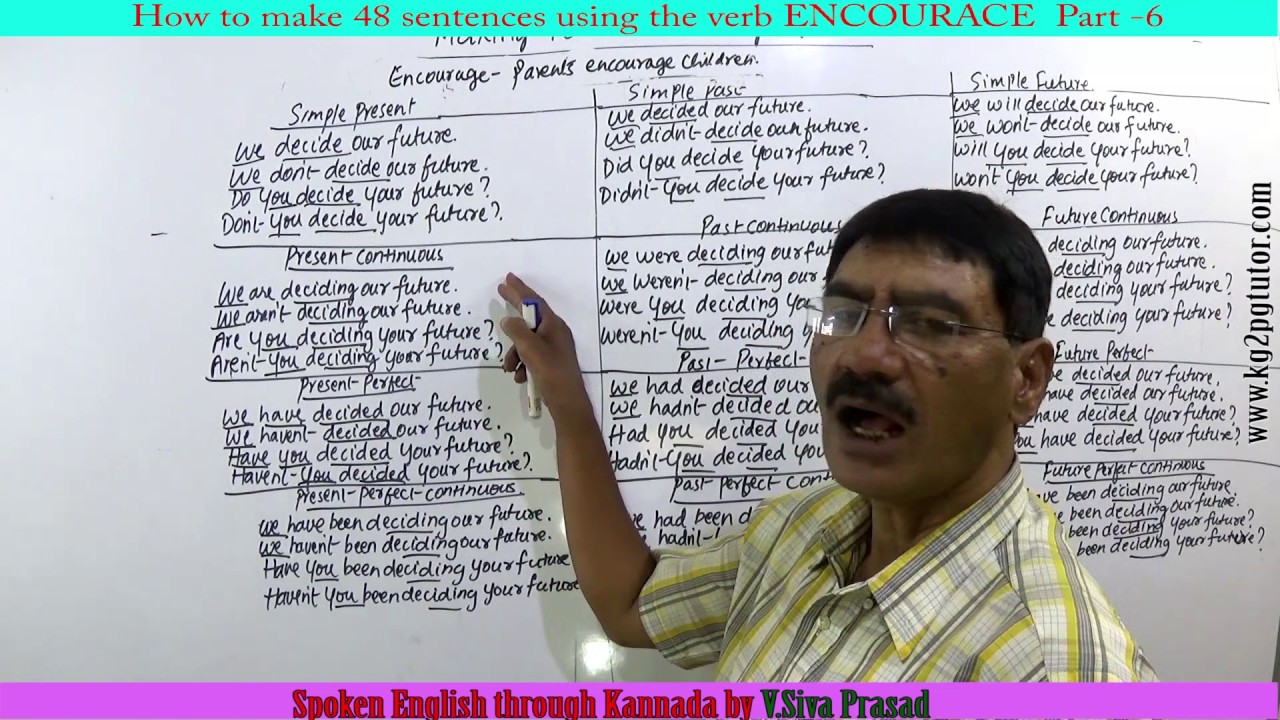 How to make 48 sentences using the verb ENCOURACE Part -6
Encourage- Parents encourage children.
Simple Present
We decide our future.
We don't decide our future.
Do you decide your future?
Don't you decide your future?
Present continuous
We are deciding our future.
We aren't deciding our future.
Are you deciding your future?
Aren't you deciding your future?
Present Perfect
We have decided our future.
We haven't decided our future.
Have you decided your future?
Haven't you decided your future?
Present Perfect continuous
We have been deciding our future.
We havent been deciding our future.
Have you been deciding your future
Haven't you been deciding your future
Simple past
We decided our future.
We didn't decide our future.
Did you decide your future?
Didn't you decide your future?
Past continuous
We were deciding our
We weren't deciding our
Were you deciding
weren't you deciding
Past - Perfect
We had decided our
We hadn't decided
Had you decided
Hadn't you decided
Past perfect
had been
hadn't
Simple Future
We will decide our future.
We won't decide our future.
Will you decide your future?
Won't you decide your future?
Future Continuous
deciding our future.
deciding our future.
deciding your future?
deciding your future?
Future Perfect
decided our future.
have decided our future.
have decided your future?
you have decided your future?
Future Perfect continuous
been deciding our future
been deciding our future.
been deciding your future?
been deciding your future?
www.kg2pgtutor.com
Spoken English through Kannada by V.Siva Prasad